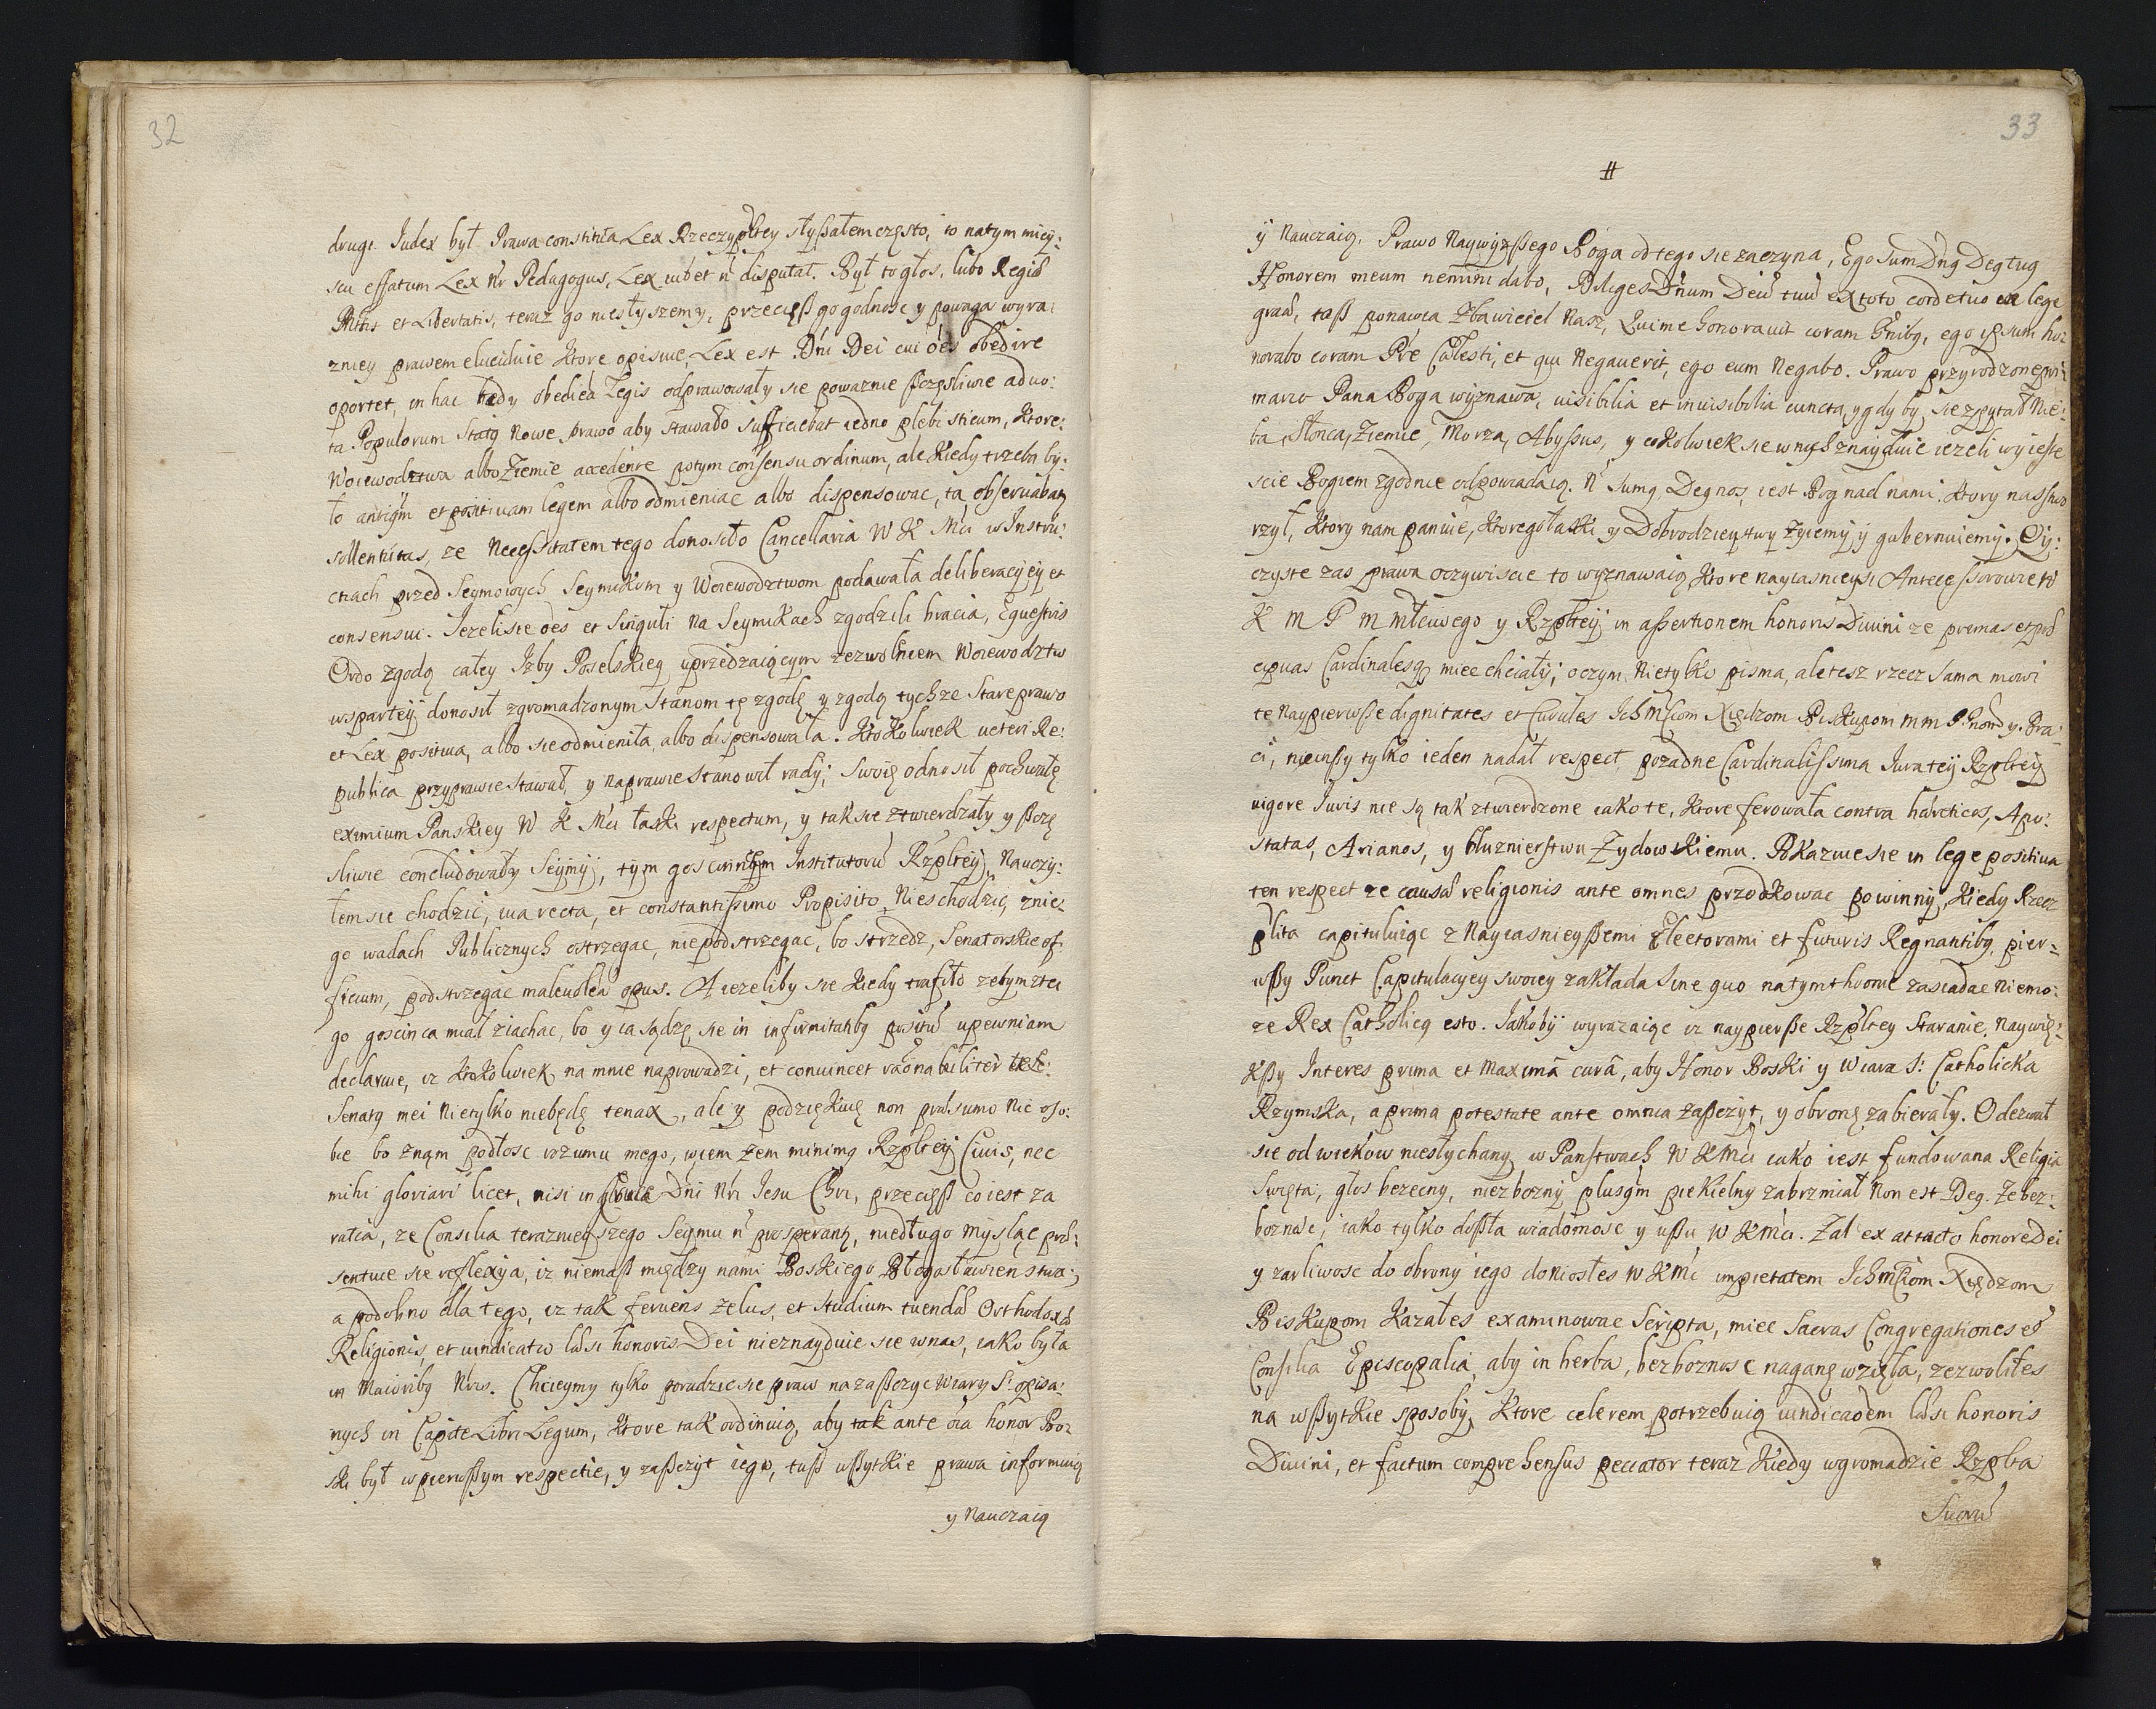 32
drugi. Judex był Prawa constituta Lex Rzeczypltey słyszałem często, io na tym miey:
scu effatum Lex nr Pedagogus, Lex iubet n disputat. Był to głos, lubo Regiæ
Mttis et Libertatis, teraz go niesłyszemy, przecięß go godnosc y powaga wyra:
zniey prawem eluciduie ktore opisuie, Lex est Dni Dei cui oēs obedire
oportet, in hac tedy obediēa Legis odprawowały sie powaznie ßczęsliwie aduo:
ta Populorum Statq Nowe prawo aby stawało sufficiebat iedno plebisticum, ktore:
Woiewodztwa albo Ziemie accedente potym consensu ordinum, ale kiedy trzeba by:
ło antiqm et positiuam legem albo odmieniac albo dispensowac, ta obseruabat
sollennitas, ze Necessitatem tego donosiło Cancellaria W K Mci w Instru:
ctiach przed Seymowych Seymikom y Woiewodztwom podawała deliberacyiey et
consensui. Jezeli sie oēs et Singuli na Seymikach zgodzili bracia, Equestris
Ordo zgodą całey Izby Poselskieg uprzedzaiącym zezwolniem Woiewodztw
wspartey donosił zgromadzonym Stanom tę zgodę y zgodą tychze Stare prawo
et Lex positiua, albo sie odmieniła, albo dispensowała. Ktokolwiek ueteri Re:
publica przy prawie stawał, y na prawie stanowił rady; swoię odnosił pochwałę
eximium Panskiey W K Mci łaski respectum, y tak sie ztwierdzały y ßczę
sliwie concludowały Seymy, tym goscincem Institutorū Rzpltey, Nauczy:
łem sie chodzic, uia recta, et constantissimo Propisito, Nieschodzic, z nie:
go wadach Publicznych ostrzegac, nie podstrzegac, bo strzedz, Senatorskie of
ficium, podstrzegac maleuolēa opus. A iezeliby sie kiedy trafiło zebym z te
go goscinca miał ziachac, bo y ia sądzę sie in infirmitatibq positū upewniam
declaruie, iz ktokolwiek na mnie naprowadzi, et conuincet raōnabiliter
Senatq mei Nietylko niebędę tenax, ale y podziękuię non præsumo Nic o so:
bie bo znam podłosc rozumu mego, wiem zem minimq Rzpltey Ciuis, nec
mihi gloriari licet, nisi in Cruce Dni Nri Jesu Chri, przecięß co iest za
ratia, ze Consilia terazniegszego Seymu n prosperant, niedługo mysląc præ:
sentuie sie reflexya, iz niemaß między nami Boskiego Błogosławienstwa;
a podobno dla tego, iz tak feruens zelus, et studium tuendæ Orthodoxæ
Religionis, et uindicatio læsi honoris Dei nieznayduie sie w nas, iako była
in Maioribq Nris. Chcieymy tylko poradzic sie praw na zaßczyc Wiary S. opisa:
nych in Capite Libri Legum, ktore tak ordinuią, aby tak ante oīa honor Bo:
ski był w pierwßym respectie, y zaßczyt iego, tuß wßytkie prawa informuią
y Nauczaią
33
#
y Nauczaią. Prawo Naywyzßego Boga od tego sie zaczyna, Ego Sum Dnq Deq tuq
Honorem meum nemini dabo, Diliges Dnum Deū tuū ex toto corde tuo ex lege
graæ, taß ponawia Zbawiciel Nasz, Qui me honorauit coram hnibq, ego ipsum ho
norabo coram Pre Cælesti, et qui Negauerit, ego eum Negabo. Prawo przyrodzone pri:
mario Pana Boga wyznawa, uisibilia et inuisibilia cuncta, y gdy by sie zpytał Nie:
ba, Słonca, Ziemie, Morza, Abyssus, y cokolwiek sie w nich znayduie iezeli wy ieste
scie Bogiem zgodnie odpowiadaią. N sumq, Deq nos, iest Bog nad nami, ktory nas stwo
rzył, ktory nam panuie, ktorego łaski y Dobrodzieystwy zyiemy y gubernuiemy. Oy:
czyste zas prawa oczywiscie to wyznawaią, ktore nayiasnieysi Antecessorowie W
K M P M młciwego y Rzpltey in assertionem honoris Diuini ze primas et præ
cipuas Cardinalesq miec chciały; o czym Nietylko pisma, ale tesz rzecz sama mowi
te Naypierwsze dignitates et Curules Ichmsciom Xiędzom Biskupom mm Pnom y Bra:
ci, nie inßy tylko ieden nadał respect, pozadne Cardinalissima Jura tey Rzpltey
uigore Juris nie są tak ztwierdzone iako te, ktore ferowała contra hæreticos, Apo:
statas, Arianos, y bluznierstwu Zydowskiemu. Pokazuie sie in lege positiua
ten respect ze causæ religionis ante omnes przodkowac powinny, kiedy Rzecz
plita capituluiąc z Nayiasnieyßemi Electorami et futuris Regnantibq, pier:
wßy Punct Capitulacyey swoiey zakłada Sine quo na tym thronie zasiadac Niemo:
ze Rex Catholicq esto. Jakoby wyrazaiąc iz naypierße Rzpltey Staranie, naywię:
kßy Interes prima et Maxima cura, aby Honor Boski y Wiara S. Catholicka
Rzymska, a prima potestate ante omnia zaßczyt, y obronę zabierały. Odezwał
sie od wiekow niesłychany w Panstwach W K Mci iako iest fundowana Religia
Swięta, głos bezecny, niezbozny, plusqm piekielny zabrzmiał Non est Deq. Ze bez:
boznosc, iako tylko doßła wiadomosc y ußu W K Mci. Zal ex attacto honore Dei
y zarliwosc do obrony iego doniosłes W K Mc impietatem Ichmsciom Xiędzom
Biskupom Kazałes examinowac Scripta, miec Sacras Congregationes et
Consilia Episcopalia, aby in herba, bezboznosc naganę wzięła, zezwoliłes
na wßytkie sposoby, ktore celerem potrzebuią uindicaōem læsi honoris
Diuini, et factum comprehensus peccator teraz kiedy w gromadzie Rzplta
Suorū